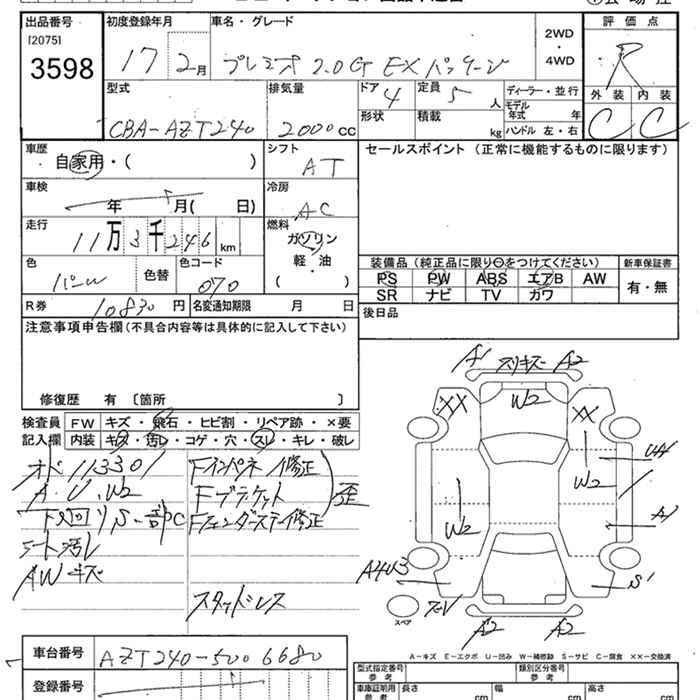 出品番号
[2075]
3598
初度登録年月
17 2月
車名・グレード
プレミオ 2.0G EXパッケージ
2WD
・
4WD
評価点
R
外装 内装
C C
型式
CBA-AZT240
排気量
2000cc
ドア
4
形状
定員
5人
積載
kg
ディーラー・並行
モデル
年式 年
ハンドル 左・右
車歴
自家用・( )
シフト
AT
車検
年 月( 日)
冷房
AC
走行
11万3千246km
燃料
ガソリン
軽・油
( )
色
パール
色替
色コード
070
R券
10830円
名変通知期限 月 日
セールスポイント(正常に機能するものに限ります)
装備品(純正品に限り○をつけてください)
PS PW ABS エアB AW
SR ナビ TV カワ
新車保証書
有・無
後日品
注意事項申告欄(不具合内容等は具体的に記入して下さい)
修復歴 有〔箇所 〕
検査員
記入欄
FW キズ・飛石・ヒビ割・リペア跡・×要
内装 キズ・汚レ・コゲ・穴・スレ・キレ・破レ
オド113301
A.U.W2
下回りS-部C
シート汚レ
AWキズ
Fインパネ修正
Fブラケット
Fフェンダーステー修正
歪
スタッドレス
A1 スリキズ A2
XX W2 XX
W2
W2
A1
S1
スペア
A2 A2
A-キズ E-エクボ U-凹み W-補修跡 S-サビ C-腐食 XX-交換済
車台番号
AZT240-5006680
登録番号
型式指定番号
参考
類別区分番号
参考
車庫証明用
参考
長さ cm
幅 cm
高さ cm